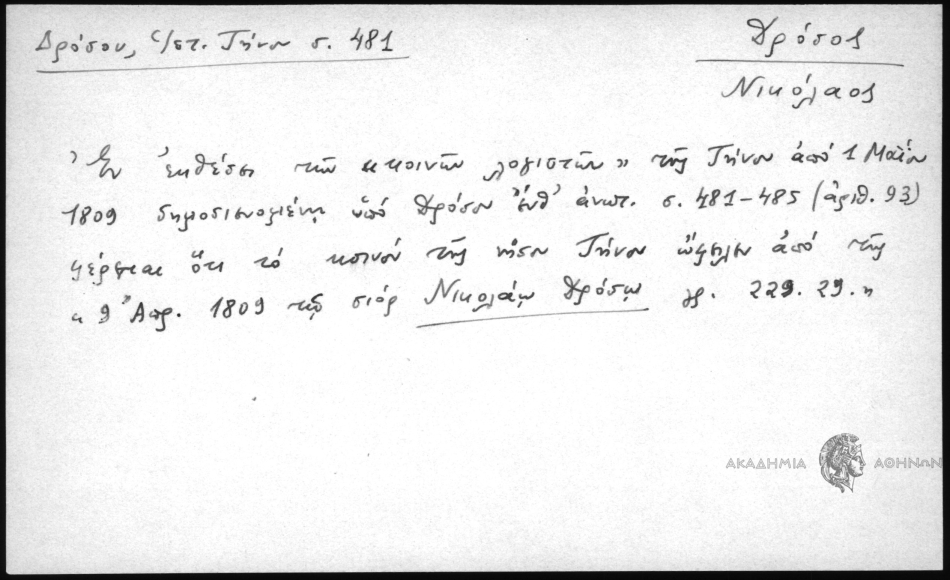 Δρόσου, Ἱστ. Τήνου σ. 481
Δρόσος
Νικόλαος
Ἐν ἐκθέσει τῶν «κοινῶν λογιστῶν» τῆς Τήνου ἀπό 1 Μαΐου
1809 δημοσιευομένῃ ὑπό Δρόσου ἔνθ' ἀνωτ. σ. 481-485 (ἀριθ. 93)
φέρεται ὅτι τό κοινόν τῆς νήσου Τήνου ὤφειλεν ἀπό τῆς
« 9 Ἀπρ. 1809 τῷ σιόρ Νικολάῳ Δρόσῳ γρ. 229.29.»
ΑΚΑΔΗΜΙΑ ΑΘΗΝΩΝ